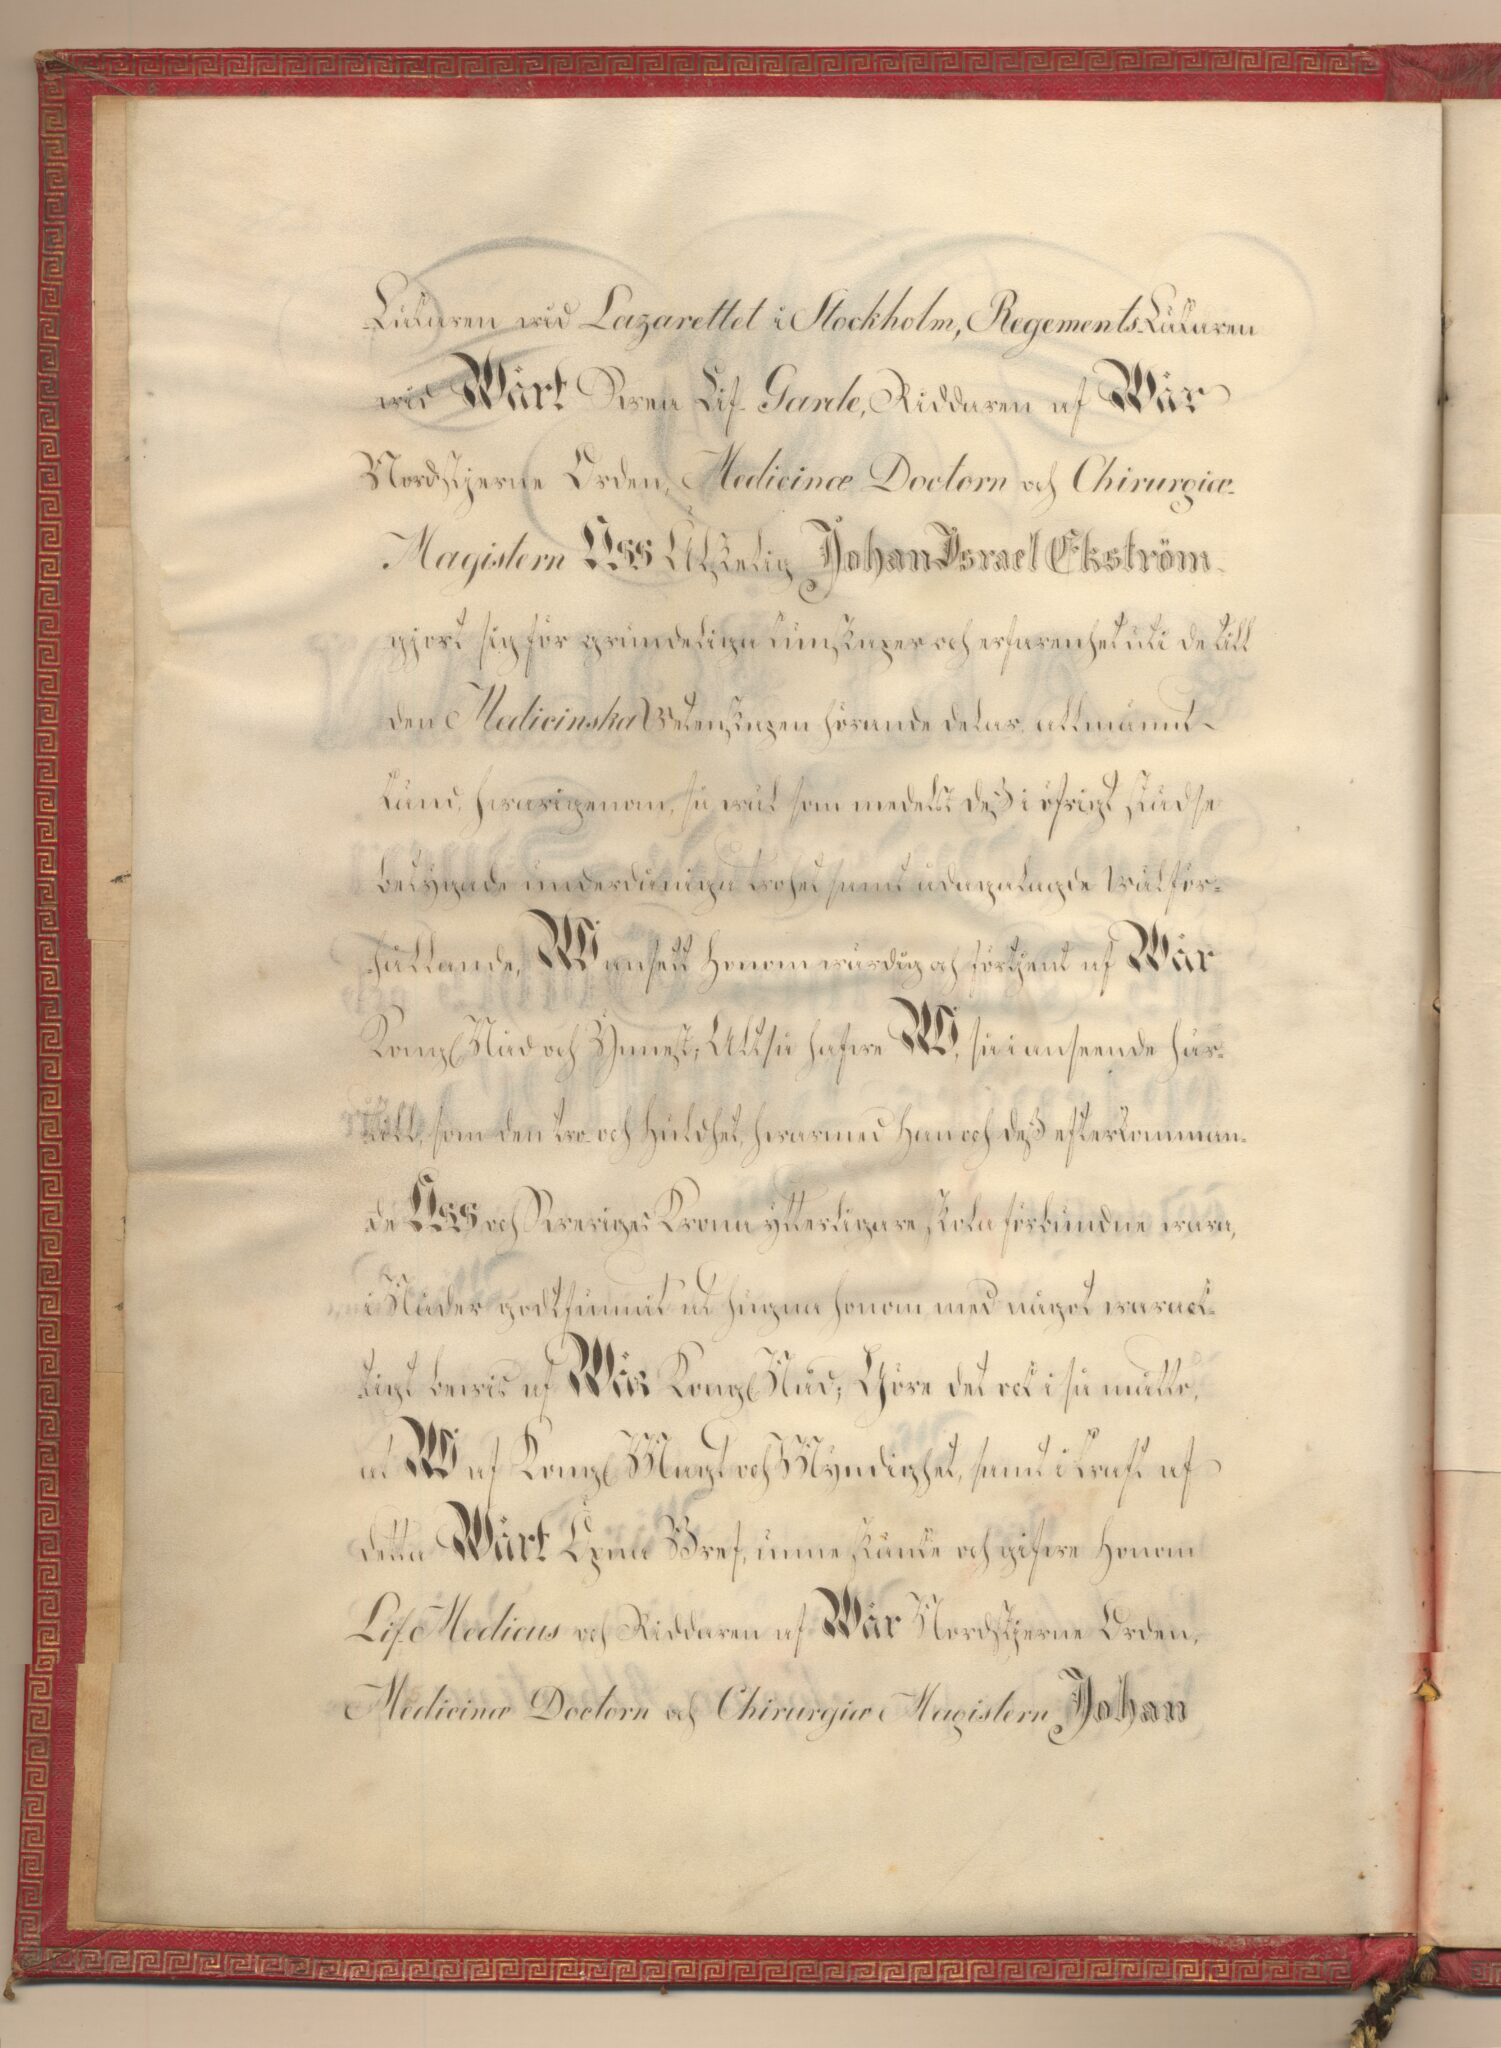 Läkaren wid Lazarettet i Stockholm, Regements Läkaren
wid Wårt Svea Lif Garde, Riddaren af Wår
Nordstjerne Orden, Medicinæ Doctorn och Chirurgiæ
Magistern Oss Älskelig Johan Israel Ekström
gjort sig för grundeliga kunskaper och erfarenhet uti de till
den Medicinska Wetenskapen hörande delar, allmännt
känd, hwarigenom, så wäl som medelst deß i öfrigt städse
betygade underdåniga trohet samt ådagalagde wälför-
hållande, Wi ansett Honom wärdig och förtjent af Wår
Kongl Nåd och Ynnest; Altså hafwe Wi, så i anseende här-
till, som den tro- och huldhet, hwarmed Han och deß efterkomman-
de Oss och Sweriges Krona ytterligare skola förbundne wara,
i Nåder godtfunnit at hugna honom med något waraek-
tigt bewis af Wår Kongl Nåd; Göre det ock i så måtto,
at Wi af Kongl Magt och Myndighet, samt i kraft af
detta Wårt Öpna Bref, unne skänke och gifwe Honom
Lif Medicus och Riddaren af Wår Nordstjerne Orden,
Medicinæ Doctorn och Chirurgiæ Magistern Johan